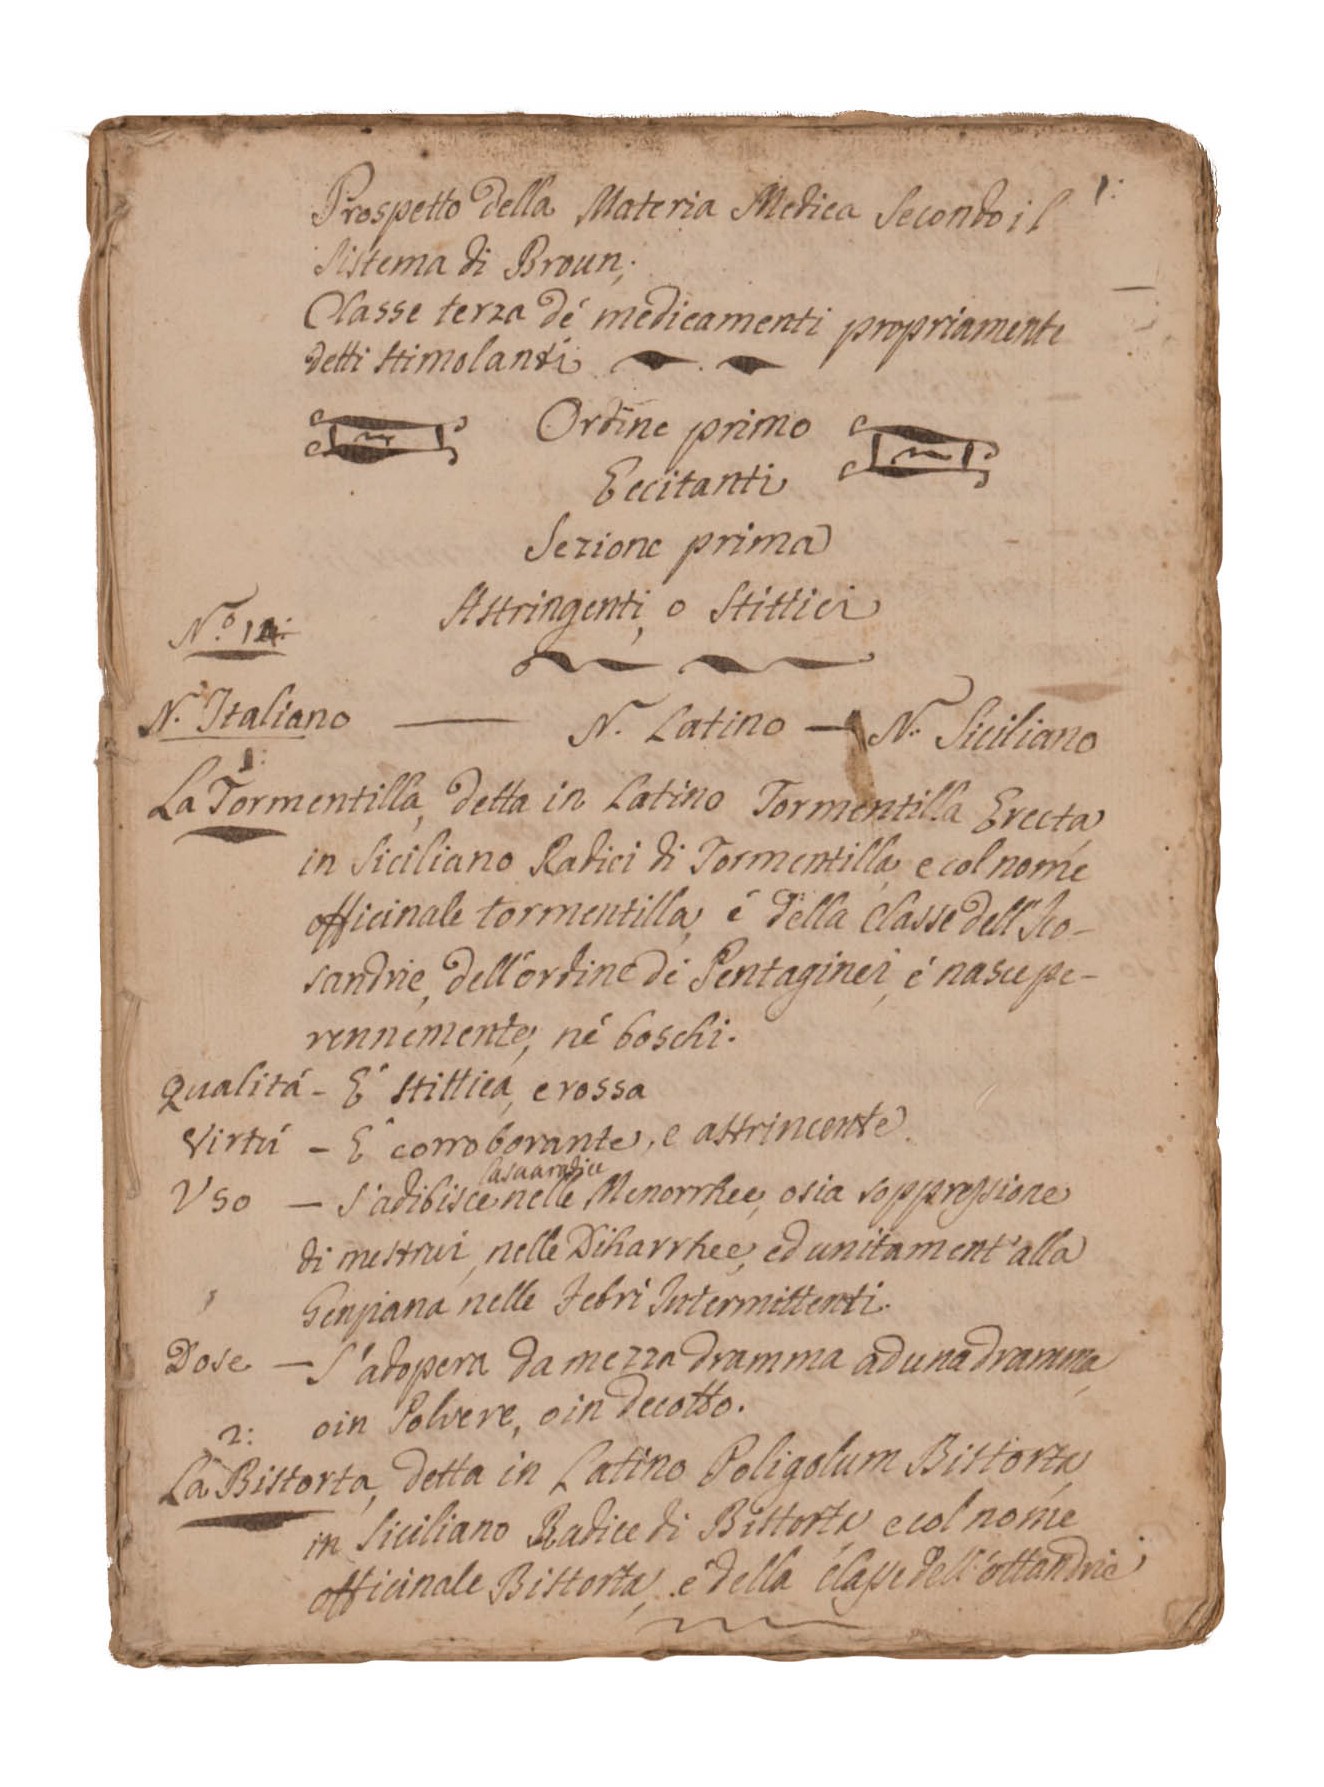 1:
Prospetto della Materia Medica Secondo il
Sistema di Broun;
Classe terza dé medicamenti propriamente
detti stimolanti
Ordine primo
Eccitanti
Sezione prima
Astringenti, o Stittici
N.º
N. Italiano — N. Latino — N. Siciliano
1:
La Tormentilla, detta in Latino Tormentilla Erecta
in Siciliano Radici di Tormentilla, e col nome
officinale tormentilla, é della Classe dell'Ico-
sandrie, dell'ordine dé Pentaginei, é nasce pe-
rennemente, né boschi.
Qualitá - E' stittica, e rossa
Virtú - E' corroborante, e astrincente.
la sua radice
Uso — S'adibisce nelle Menorrhee, o sia soppressione
di mestrui, nelle Diharrhee, ed unitament'alla
Genziana nelle Febri Intermittenti.
Dose — S'adopera da mezza dramma ad una dramma,
o in Polvere, o in decotto.
2:
La Bistorta, detta in Latino Poligolum Bistorta
in Siciliano Radice di Bistorta e col nome
officinale Bistorta, é della classe dell'ottandrie